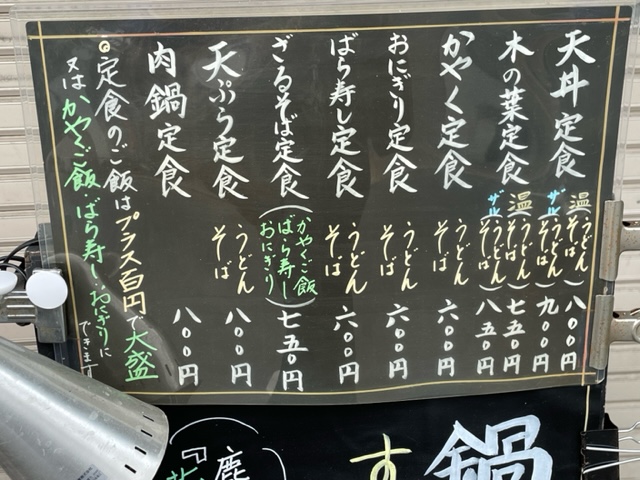 天丼定食 温(うどん そば) 八〇〇円
ザル(うどん そば) 九〇〇円
木の葉定食 温(うどん そば) 七五〇円
ザル(うどん そば) 八五〇円
かやく定食 うどん そば 六〇〇円
おにぎり定食 うどん そば 六〇〇円
ばら寿し定食 うどん そば 六〇〇円
ざるそば定食(かやくご飯 ばら寿し おにぎり) 七五〇円
天ぷら定食 うどん そば 八〇〇円
肉鍋定食 八〇〇円
◎定食のご飯はプラス百円で大盛
又はかやくご飯、ばら寿し、おにぎりに
できます
鍋
す
鹿
『